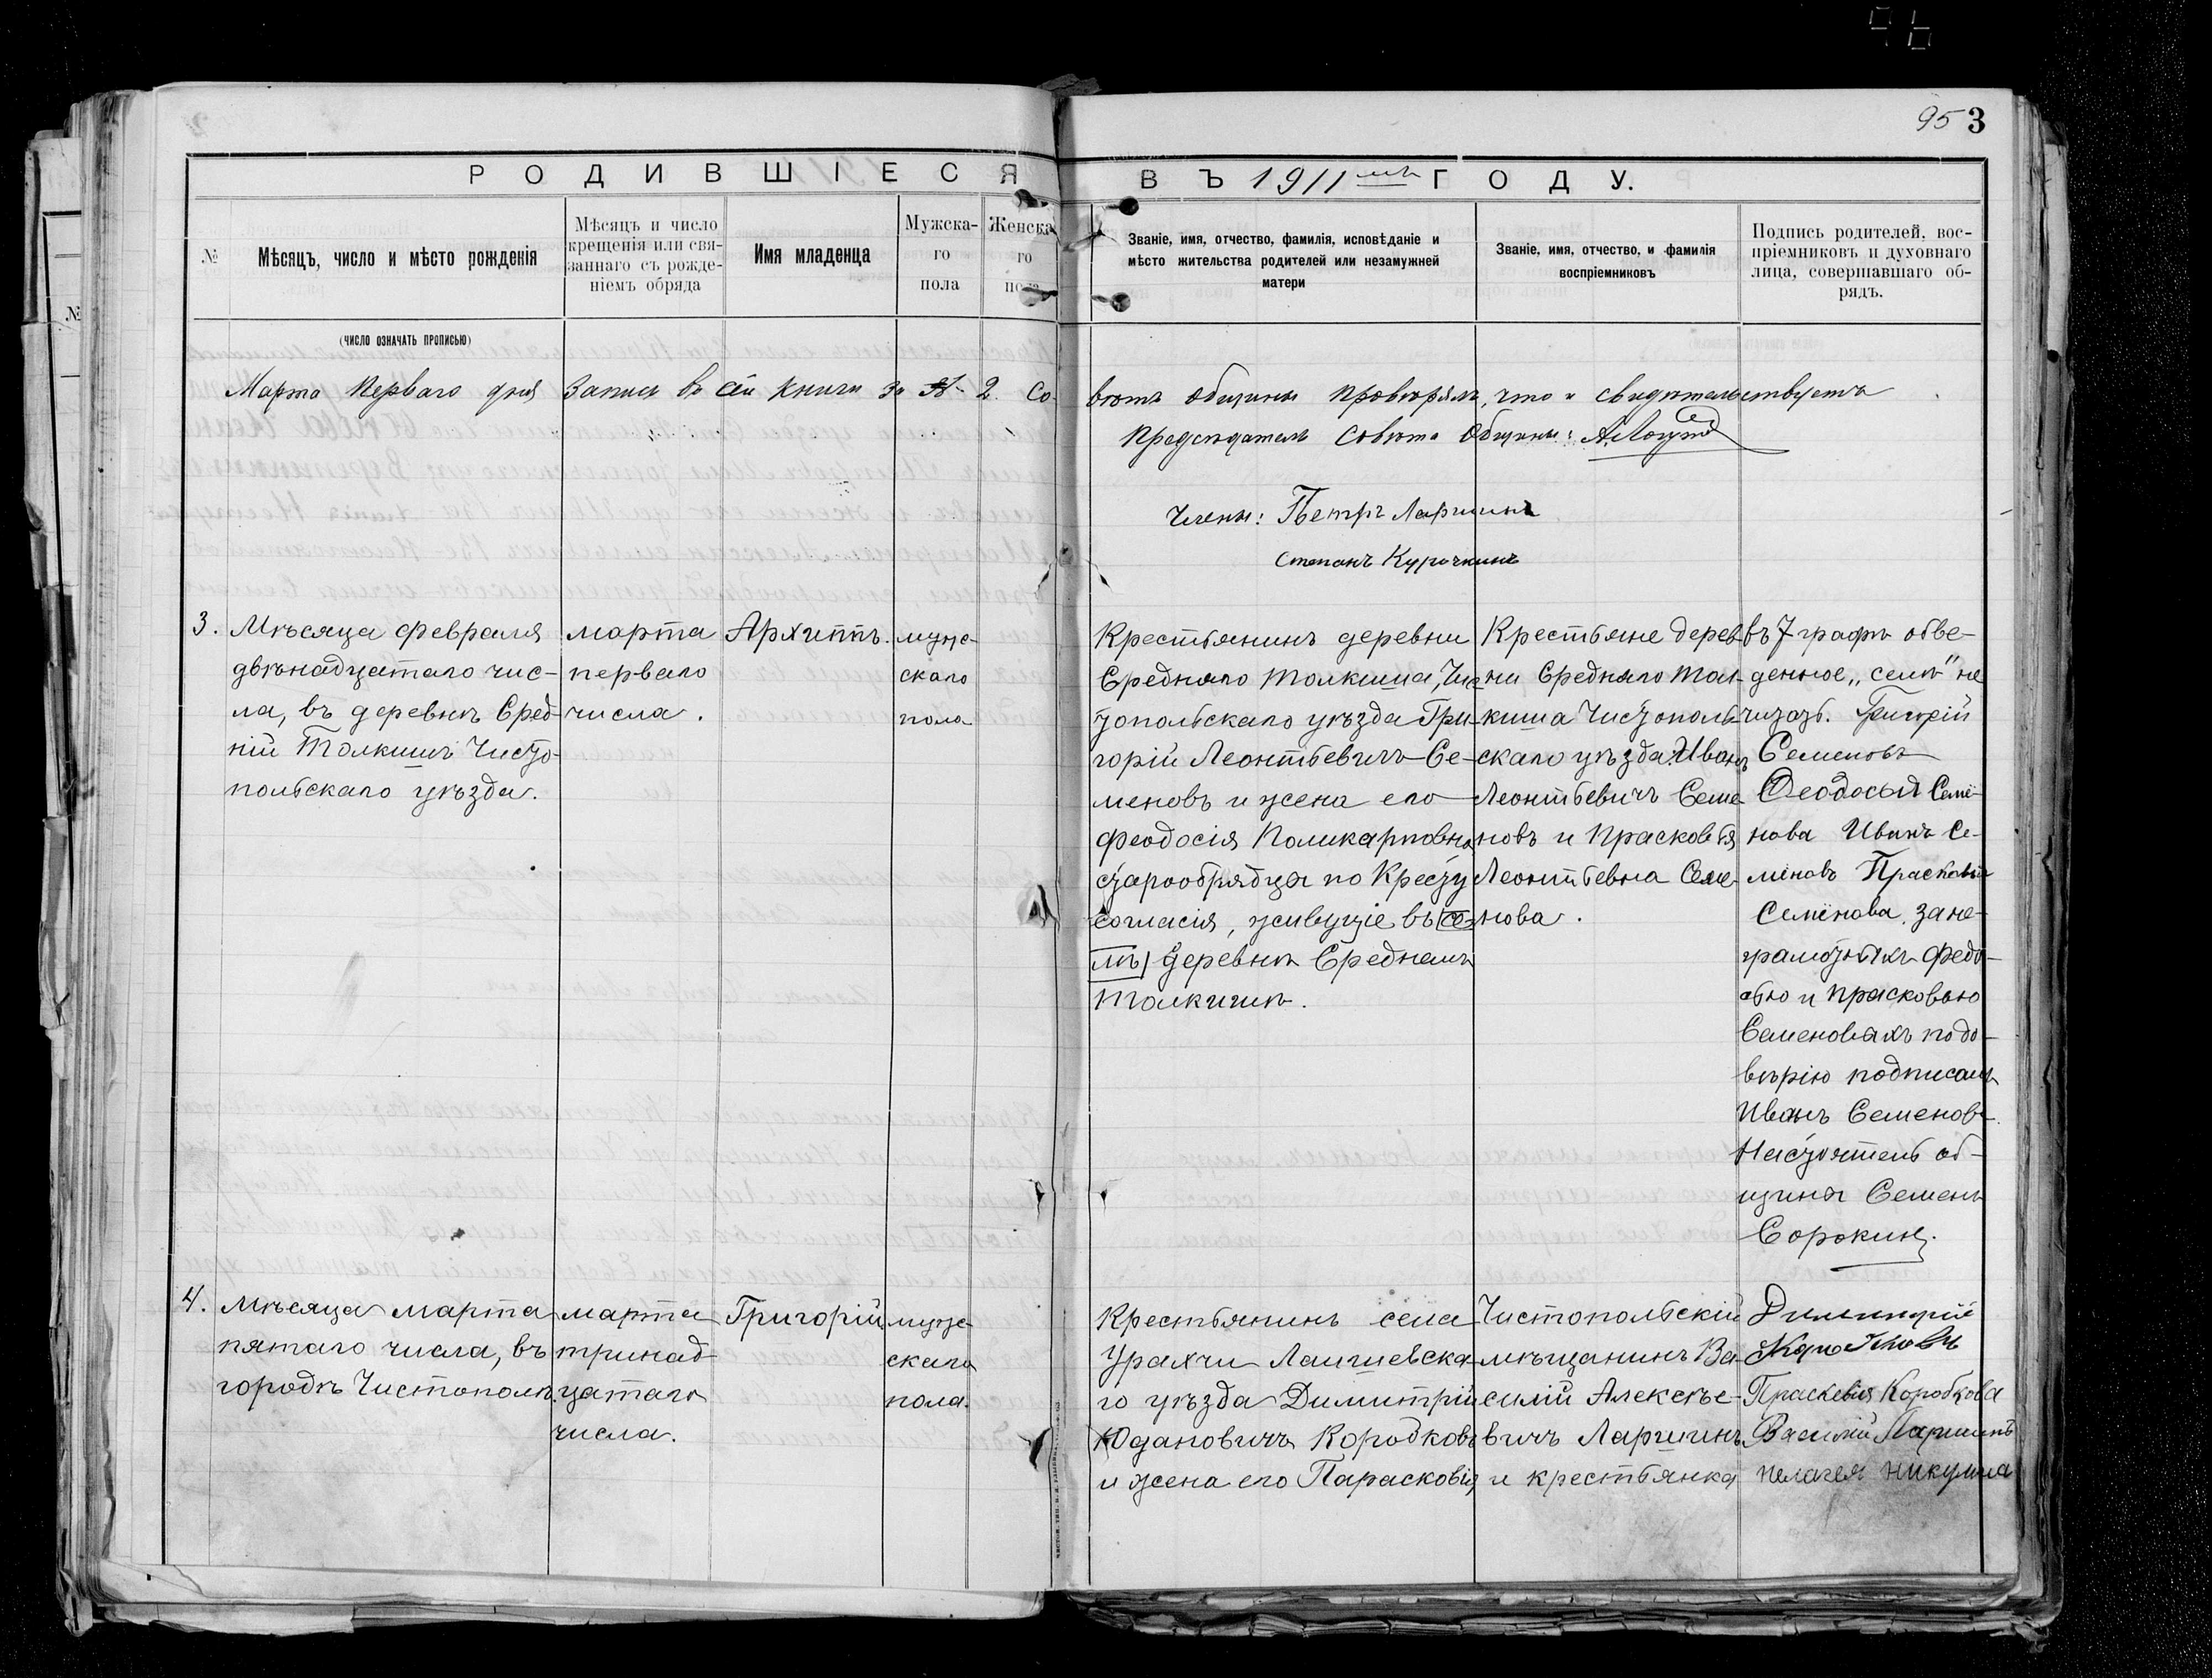 95 3
РОДИВШІЕСЯ ВЪ 1911 мъ ГОДУ.
№
Мѣсяцъ, число и мѣсто рожденія
Мѣсяцъ и число
крещенія или свя-
заннаго съ рожде-
ніемъ обряда
Имя младенца
Мужска-
го
пола
Женска
го
Званіе, имя, отчество, фамилія, исповѣданіе и
мѣсто жительства родителей или незамужней
матери
Званіе, имя, отчество, и фамилія
воспріемниковъ
Подпись родителей, вос-
пріемниковъ и духовнаго
лица, совершавшаго об-
рядъ.
(число означать прописью)
Марта Перваго дня Запись во сей книги за № 2. Со-
вѣтъ общины провѣрялъ, что и свидѣтельствуетъ
Предсѣдатель Совѣта Общины:
Члены: Петръ Ларшинъ
Степанъ Курочкинъ
3.
Мѣсяца февраля
двѣнадцатаго чис-
ла, въ деревнѣ Сред-
ній Толкишъ Чисто-
польскаго уѣзда.
марта
перваго
числа.
Архиппъ.
муже-
скаго
пола
Крестьянинъ деревни
Средняго Толкиша, Чис-
топольскаго уѣзда Гри-
горій Леонтьевичъ Се-
меновъ и жена его
Феодосія Поликарповна
старообрядцы по Кресту
согласія, живущіе въ (се-
лѣ) деревнѣ Среднемъ
Толкишѣ.
Крестьяне дерев-
ни Средняго Тол-
киша Чистополь-
скаго уѣзда: Иванъ
Леонтьевичъ Семе-
новъ и Прасковья
Леонтьевна Семе-
нова.
въ 7 графѣ обве-
денное „селѣ" не
читать. Григорій
Семеновъ
Ѳеодосья Семе-
нова Иванъ Се-
меновъ Прасковья
Семенова, за не-
грамотныхъ Федо-
сью и Прасковью
Семеновыхъ по до-
вѣрію подписалъ
Иванъ Семеновъ.
Настоятель об-
щины Семенъ
Сорокинъ.
4.
Мѣсяца марта
пятаго числа, въ
городѣ Чистополѣ.
марта
тринад-
цатаго
числа.
Григорій
муже-
скаго
пола.
Крестьянинъ села
Урахчи Лаишевска-
го уѣзда Димитрій
Юдановичъ Коробковъ
и жена его Парасковія,
Чистопольскій
мѣщанинъ Ва-
силій Алексѣе-
вичъ Ларшинъ
и крестьянка
Димитрій
Коробковъ
Праскевья Коробкова
Василій Ларшинъ
пелагея никулина